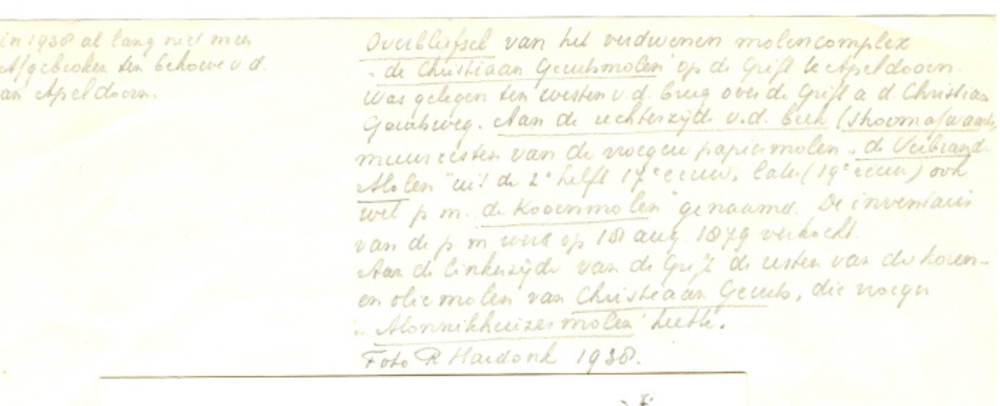 in 1938 al lang niet meer
Afgebroken ten behoeve v.d.
van Apeldoorn.
Overblijfsel van het verdwenen molencomplex
"de Christiaan Geurtsmolen" op de Grift te Apeldoorn.
Was gelegen ten westen v.d. brug over de Grift a d Christiaan
Geurtsweg. Aan de rechterzijde v.d. beek (stroomafwaarts)
muurresten van de vroegere papiermolen "de Verbrande
Molen" uit de 2e helft 17e eeuw, later (19e eeuw) ook
wel p.m. "de Korenmolen" genaamd. De inventaris
van de p.m. werd op 18 aug 1879 verkocht.
Aan de linkerzijde van de Grift de resten van de koren-
en oliemolen van Christiaan Geurts, die vroeger
"Monnikhuizermolen" heette.
Foto R Hardonk 1938.